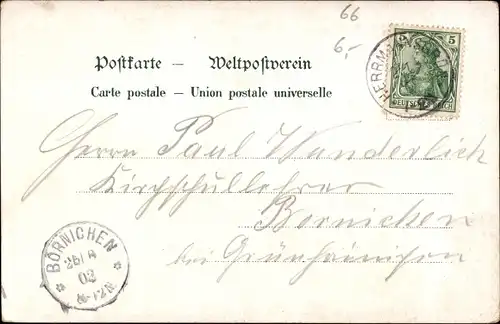 66
6,-
5
Postkarte — Weltpostverein
Carte postale — Union postale universelle
Herrn Paul Wunderlich
Kirchschullehrer
Bornichen
bei Grünhainichen
BÖRNICHEN
02
8-12N